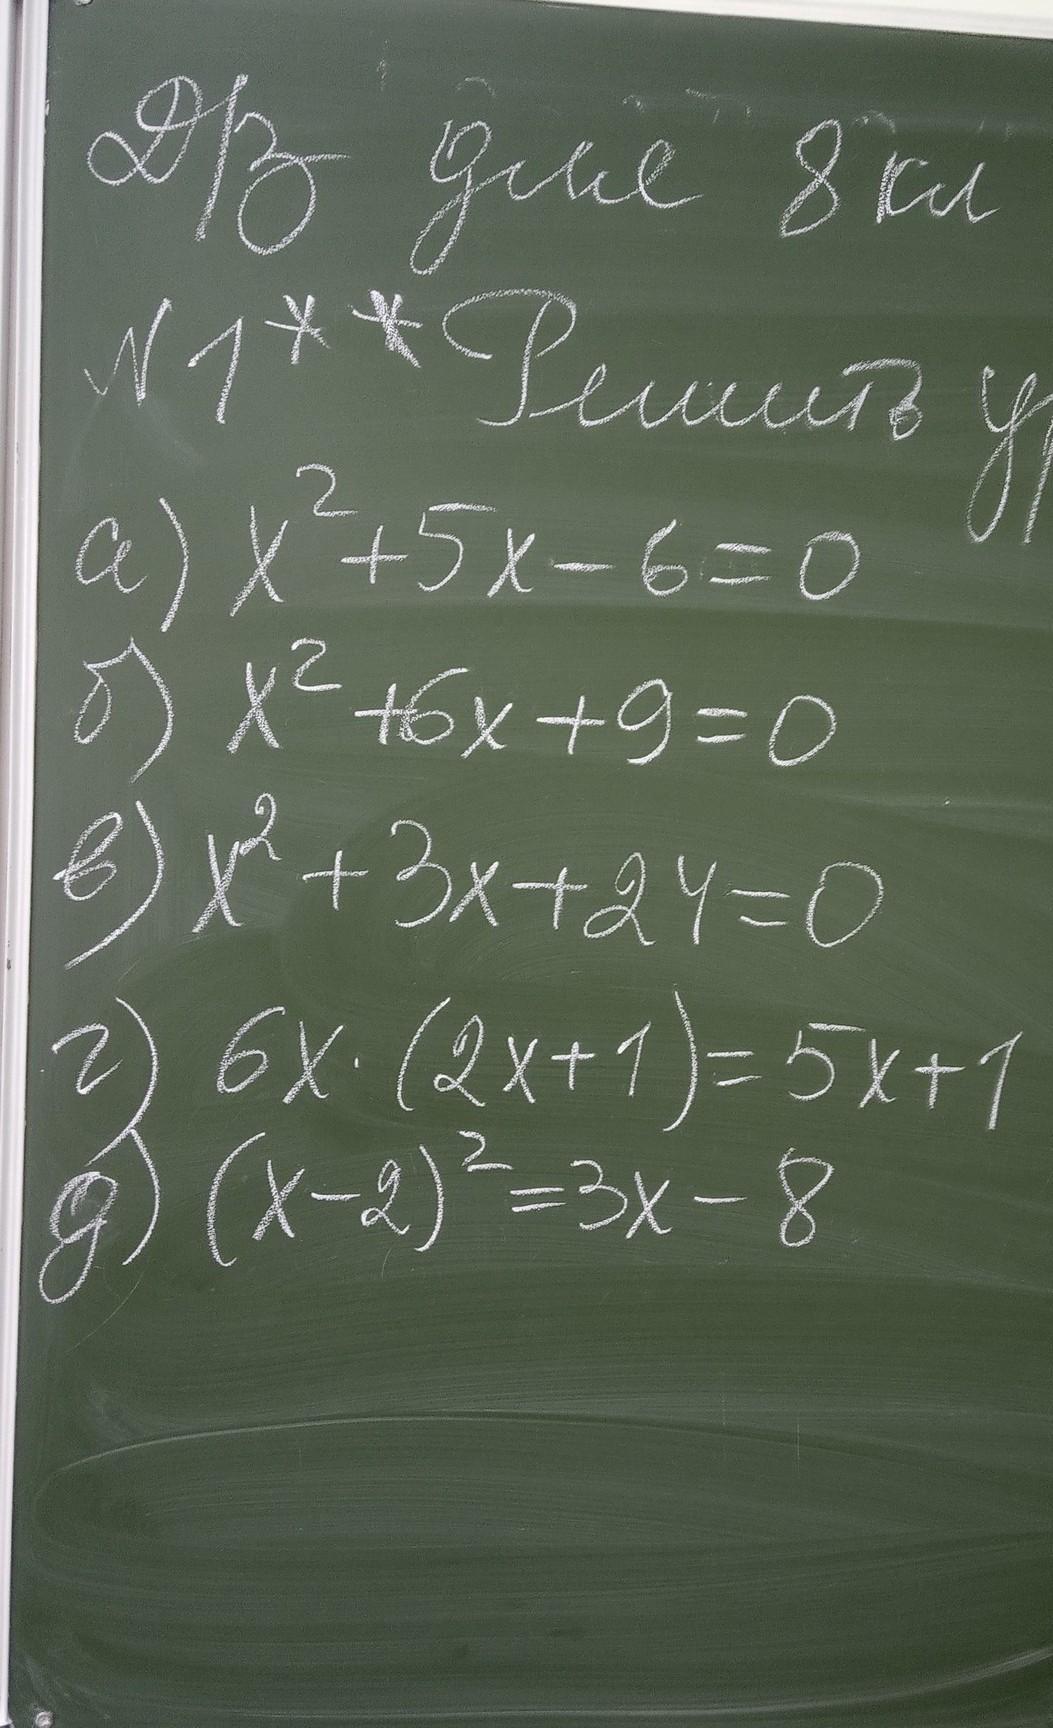 Д/З для 8 кл
N 1** Решить ур
а) x² + 5x - 6 = 0
б) x² + 6x + 9 = 0
в) x² + 3x + 24 = 0
г) 6x · (2x + 1) = 5x + 1
д) (x - 2)² = 3x - 8